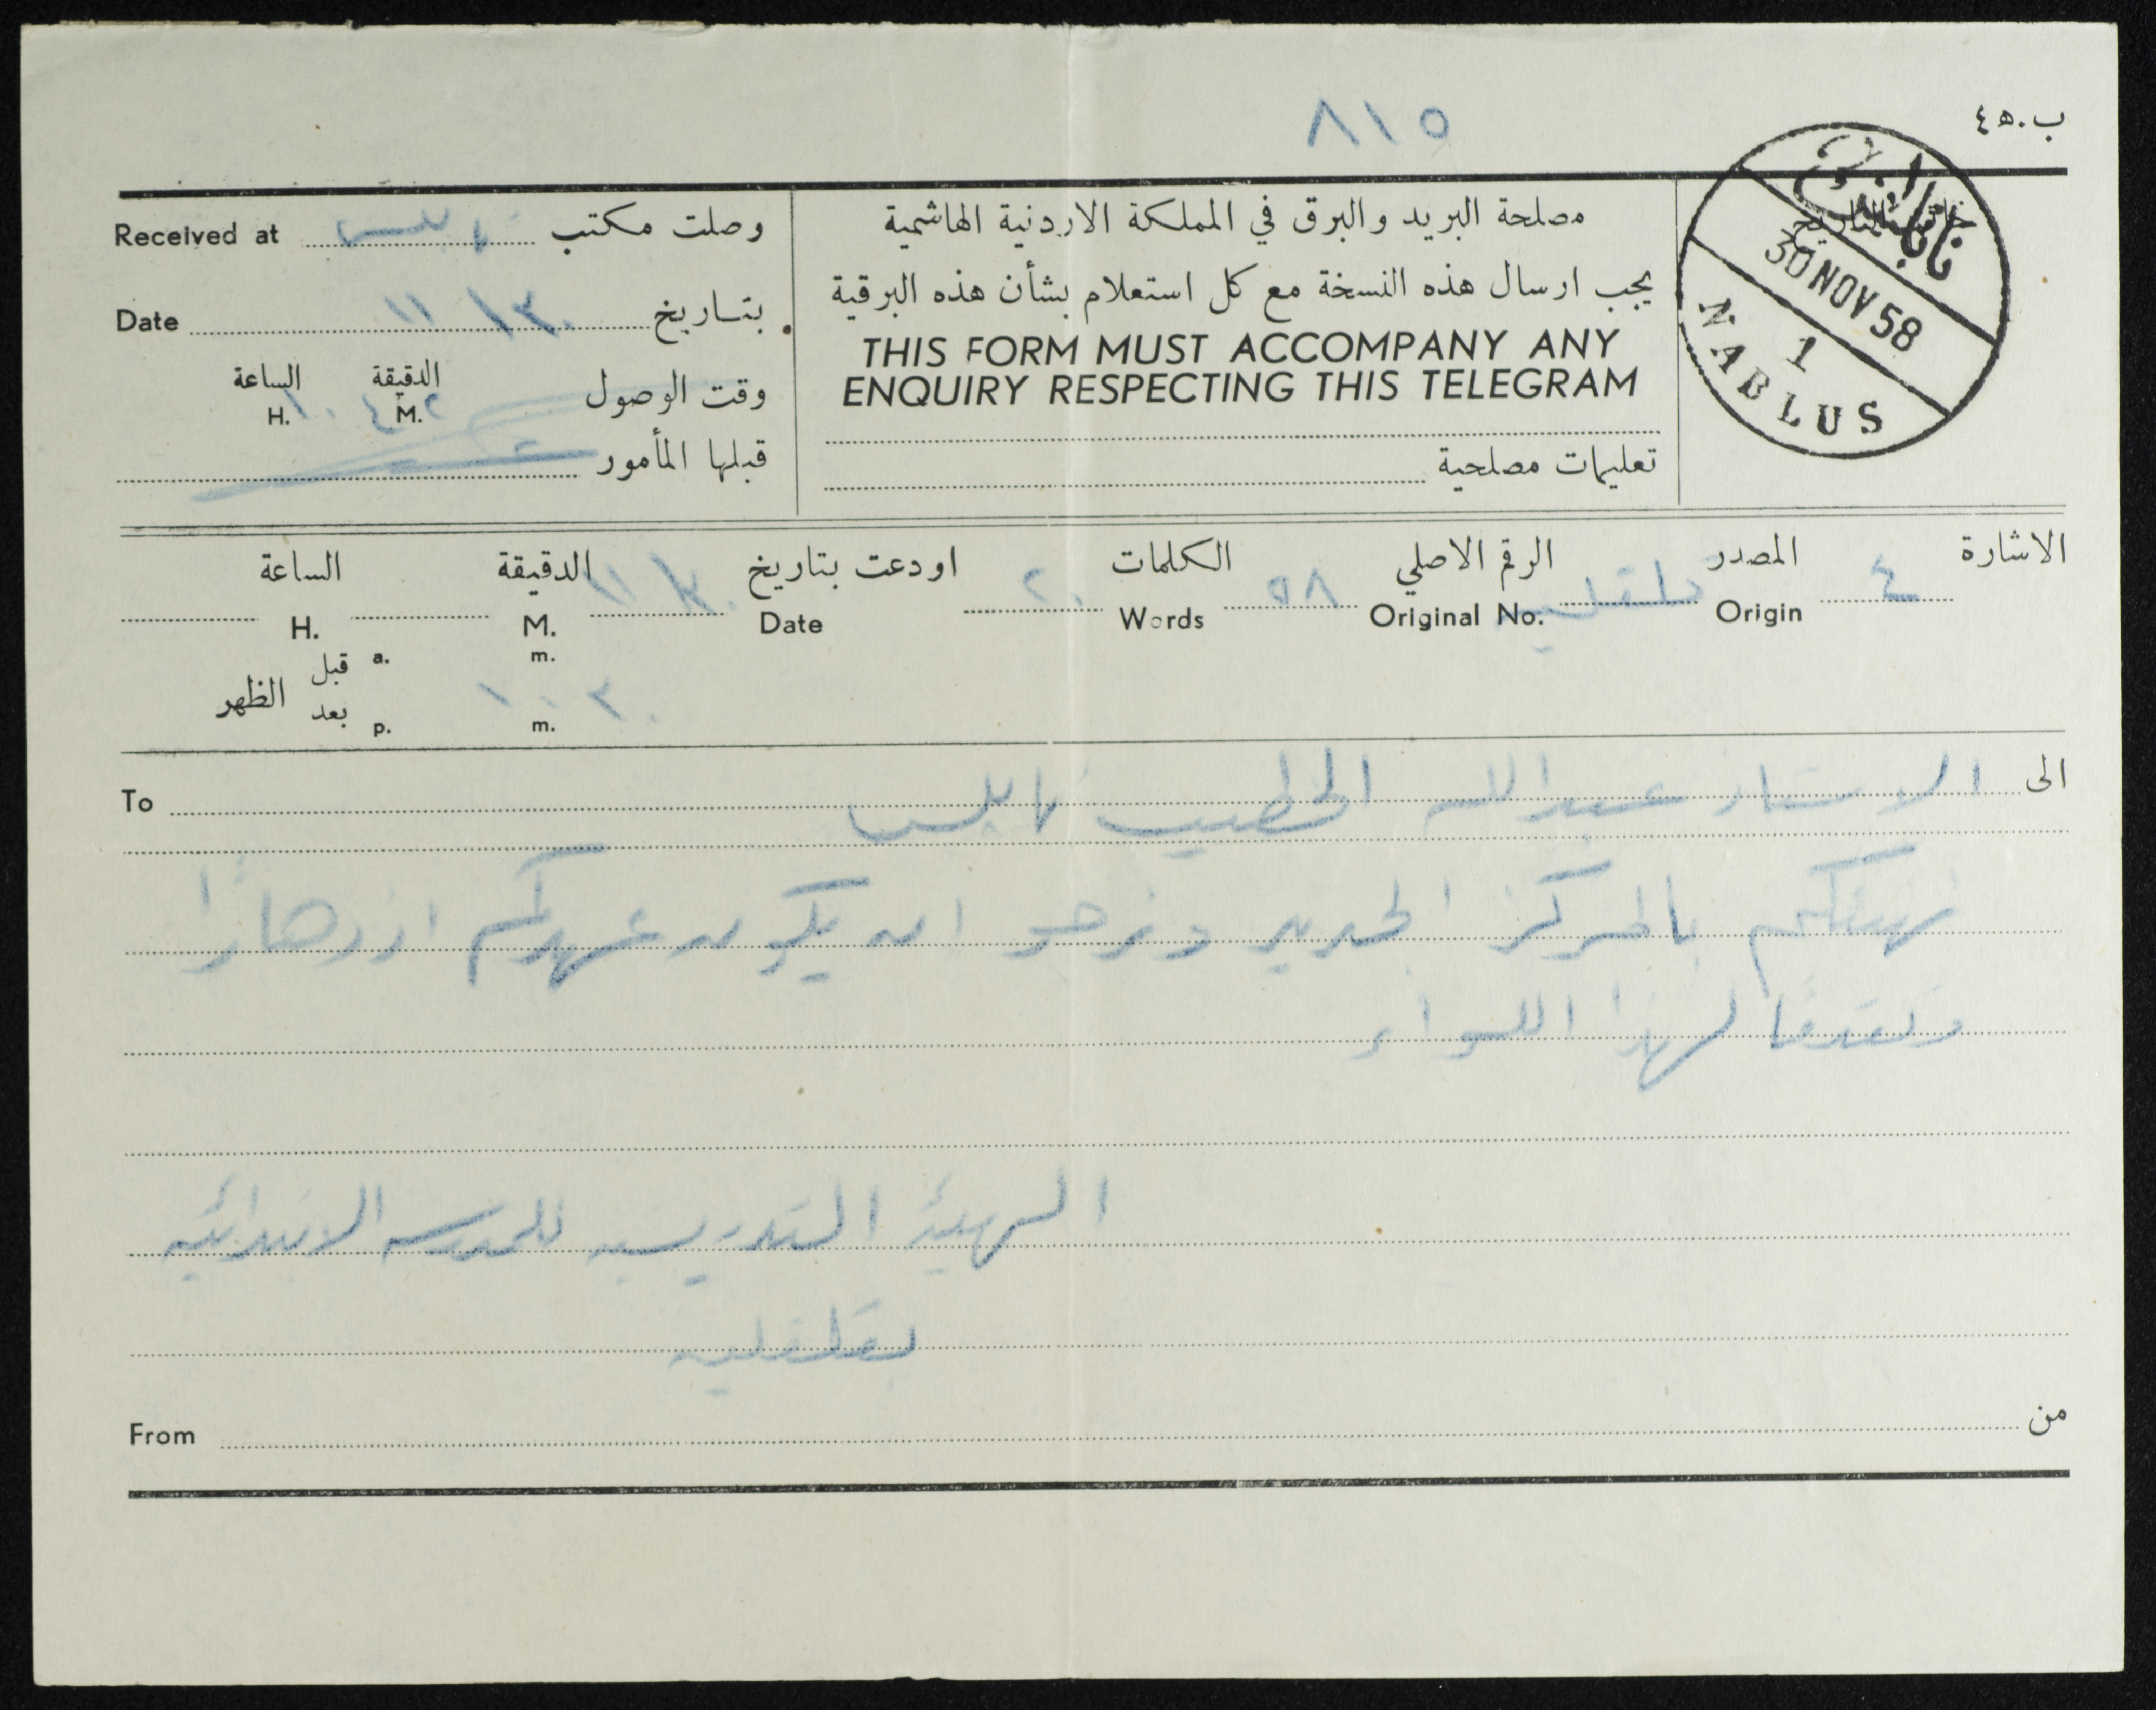 ٨١٥
ب.٥٤
نابلس
ختم التاريخ
30 NOV 58
1
NABLUS
مصلحة البريد والبرق في المملكة الاردنية الهاشمية
يجب ارسال هذه النسخة مع كل استعلام بشأن هذه البرقية
THIS FORM MUST ACCOMPANY ANY
ENQUIRY RESPECTING THIS TELEGRAM
تعليمات مصلحية
وصلت مكتب نابلس Received at
بتاريخ ٣٠/١١ Date
الدقيقة الساعة
وقت الوصول ٤٢ M. ١٠ H.
قبلها المأمور
الاشارة ٤ المصدر قلقيلية الرقم الاصلي ٥٨ الكلمات ٢٠ اودعت بتاريخ ٣٠/١١ الدقيقة الساعة
Origin Original No. Words Date M. H.
قبل a. m.
الظهر
بعد p. m. ١٠٣٠
الى الاستاذ عبدالله الخطيب نابلس To
نهنئكم بالمركز الجديد ونرجو ان يكون عهدكم ازدهارًا
وتقدمًا لهذا اللواء
الهيئة التدريسية للمدرسة الابتدائية
بقلقيلية
من From